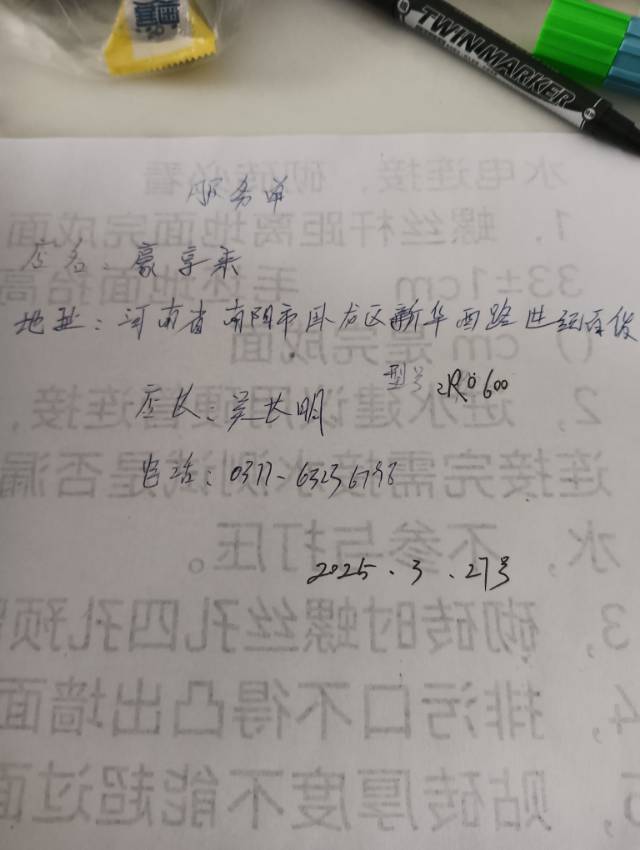 TWIN MARKER
服务单
店名：豪享来
地址：河南省南阳市卧龙区新华西路世纪百货
型号 2R0600
店长：吴长明
电话：0377-63236798
2025.3.27号
水电连接，砌砖必看
1，螺丝杆距离地面完成面
33±1cm 毛坯地面抬高
cm 是完成面
2，进水建议用硬管连接，
连接完需接水测试是否漏
水，不参与打压。
3，砌砖时螺丝孔四孔预
4，排污口不得凸出墙面
5，贴砖厚度不能超过面